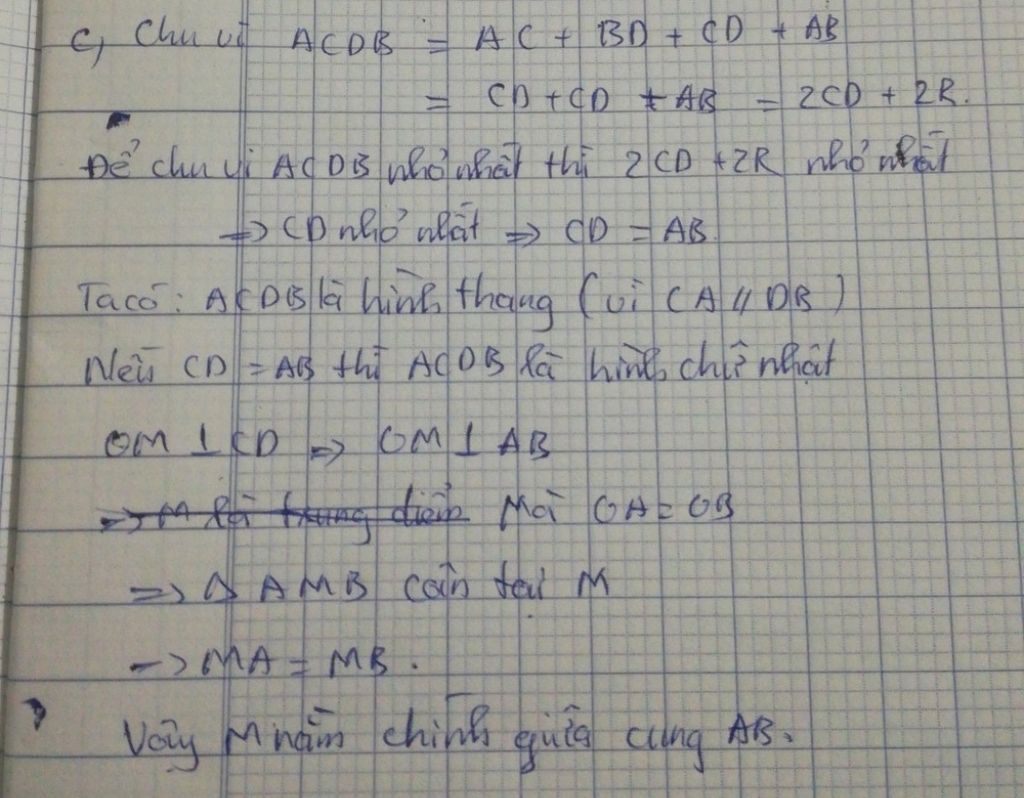 c, Chu vi ACDB = AC + BD + CD + AB
= CD + CD + AB = 2CD + 2R.
Để chu vi ACDB nhỏ nhất thì 2CD + 2R nhỏ nhất
=> CD nhỏ nhất => CD = AB.
Ta có: ACDB là hình thang (vì CA // DB)
Nếu CD = AB thì ACDB là hình chữ nhật
OM ⊥ CD => OM ⊥ AB
=> M là trung điểm Mà OA = OB
=> Δ AMB cân tại M
=> MA = MB.
Vậy M nằm chính giữa cung AB.